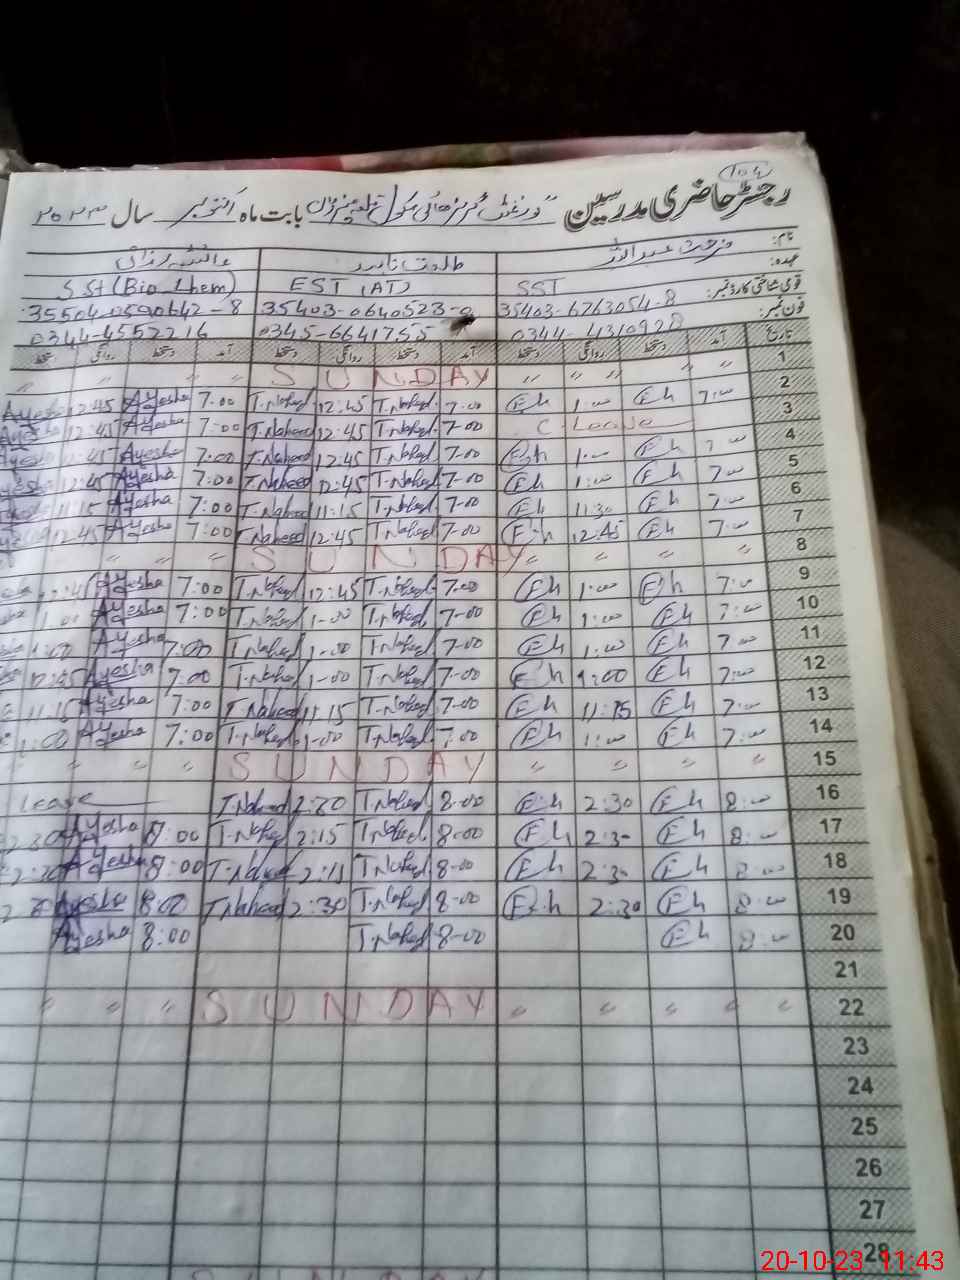 104
رجسٹر حاضری مدرسین گورنمنٹ گرلز ہائی سکول بابت ماہ اکتوبر سال ۲۰۲۳
نام:
عہدہ: SST EST (AT) SSt (Bio Chem)
قومی شناختی کارڈ نمبر: 35403-6763054-8 35403-0640523- 35504-0590642-8
فون نمبر: 0344-4310928 0345-6641755 0344-4552216
تاریخ آمد دستخط روانگی دستخط آمد دستخط روانگی دستخط آمد دستخط روانگی دستخط
1 " " " " SUNDAY " " "
2 7:00 Fh 1:00 Fh 7-00 T.Naheed 12:45 T.Naheed 7:00 Ayesha 12:45 Ayesha
3 C-Leave 7-00 T.Naheed 12:45 T.Naheed 7:00 Ayesha 12:45 Ayesha
4 7:00 Fh 1:00 Fh 7-00 T.Naheed 12:45 T.Naheed 7:00 Ayesha 12:45 Ayesha
5 7:00 Fh 1:00 Fh 7-00 T.Naheed 12:45 T.Naheed 7:00 Ayesha 12:45 Ayesha
6 7:00 Fh 11:30 Fh 7-00 T.Naheed 11:15 T.Naheed 7:00 Ayesha 11:15
7 7:00 Fh 12:45 Fh 7-00 T.Naheed 12:45 T.Naheed 7:00 Ayesha 12:45
8 " " " SUNDAY " " "
9 7:00 Fh 1:00 Fh 7:00 T.Naheed 12:45 T.Naheed 7:00 Ayesha
10 7:00 Fh 1:00 Fh 7-00 T.Naheed 1-00 T.Naheed 7:00 Ayesha 1:00
11 7:00 Fh 1:00 Fh 7-00 T.Naheed 1-00 T.Naheed 7:00 Ayesha 1:00
12 7:00 Fh 1:00 Fh 7-00 T.Naheed 1-00 T.Naheed 7:00 Ayesha
13 7:00 Fh 11:15 Fh 7-00 T.Naheed 11:15 T.Naheed 7:00 Ayesha 11:15
14 7:00 Fh 1:00 Fh 7:00 T.Naheed 1-00 T.Naheed 7:00 Ayesha 1:00
15 " " " " SUNDAY " " "
16 8:00 Fh 2:30 Fh 8-00 T.Naheed 2:30 T.Naheed Leave
17 8:00 Fh 2:30 Fh 8-00 T.Naheed 2:15 T.Naheed 8:00 Ayesha 2:30
18 8:00 Fh 2:30 Fh 8-00 T.Naheed 2:15 T.Naheed 8:00 Ayesha 2:30
19 8:00 Fh 2:30 Fh 8-00 T.Naheed 2:30 T.Naheed 8:00 Ayesha
20 8:00 Fh 8-00 T.Naheed 8:00 Ayesha
21
22 " " " " SUNDAY " " "
23
24
25
26
27
28
SUNDAY
20-10-23 11:43